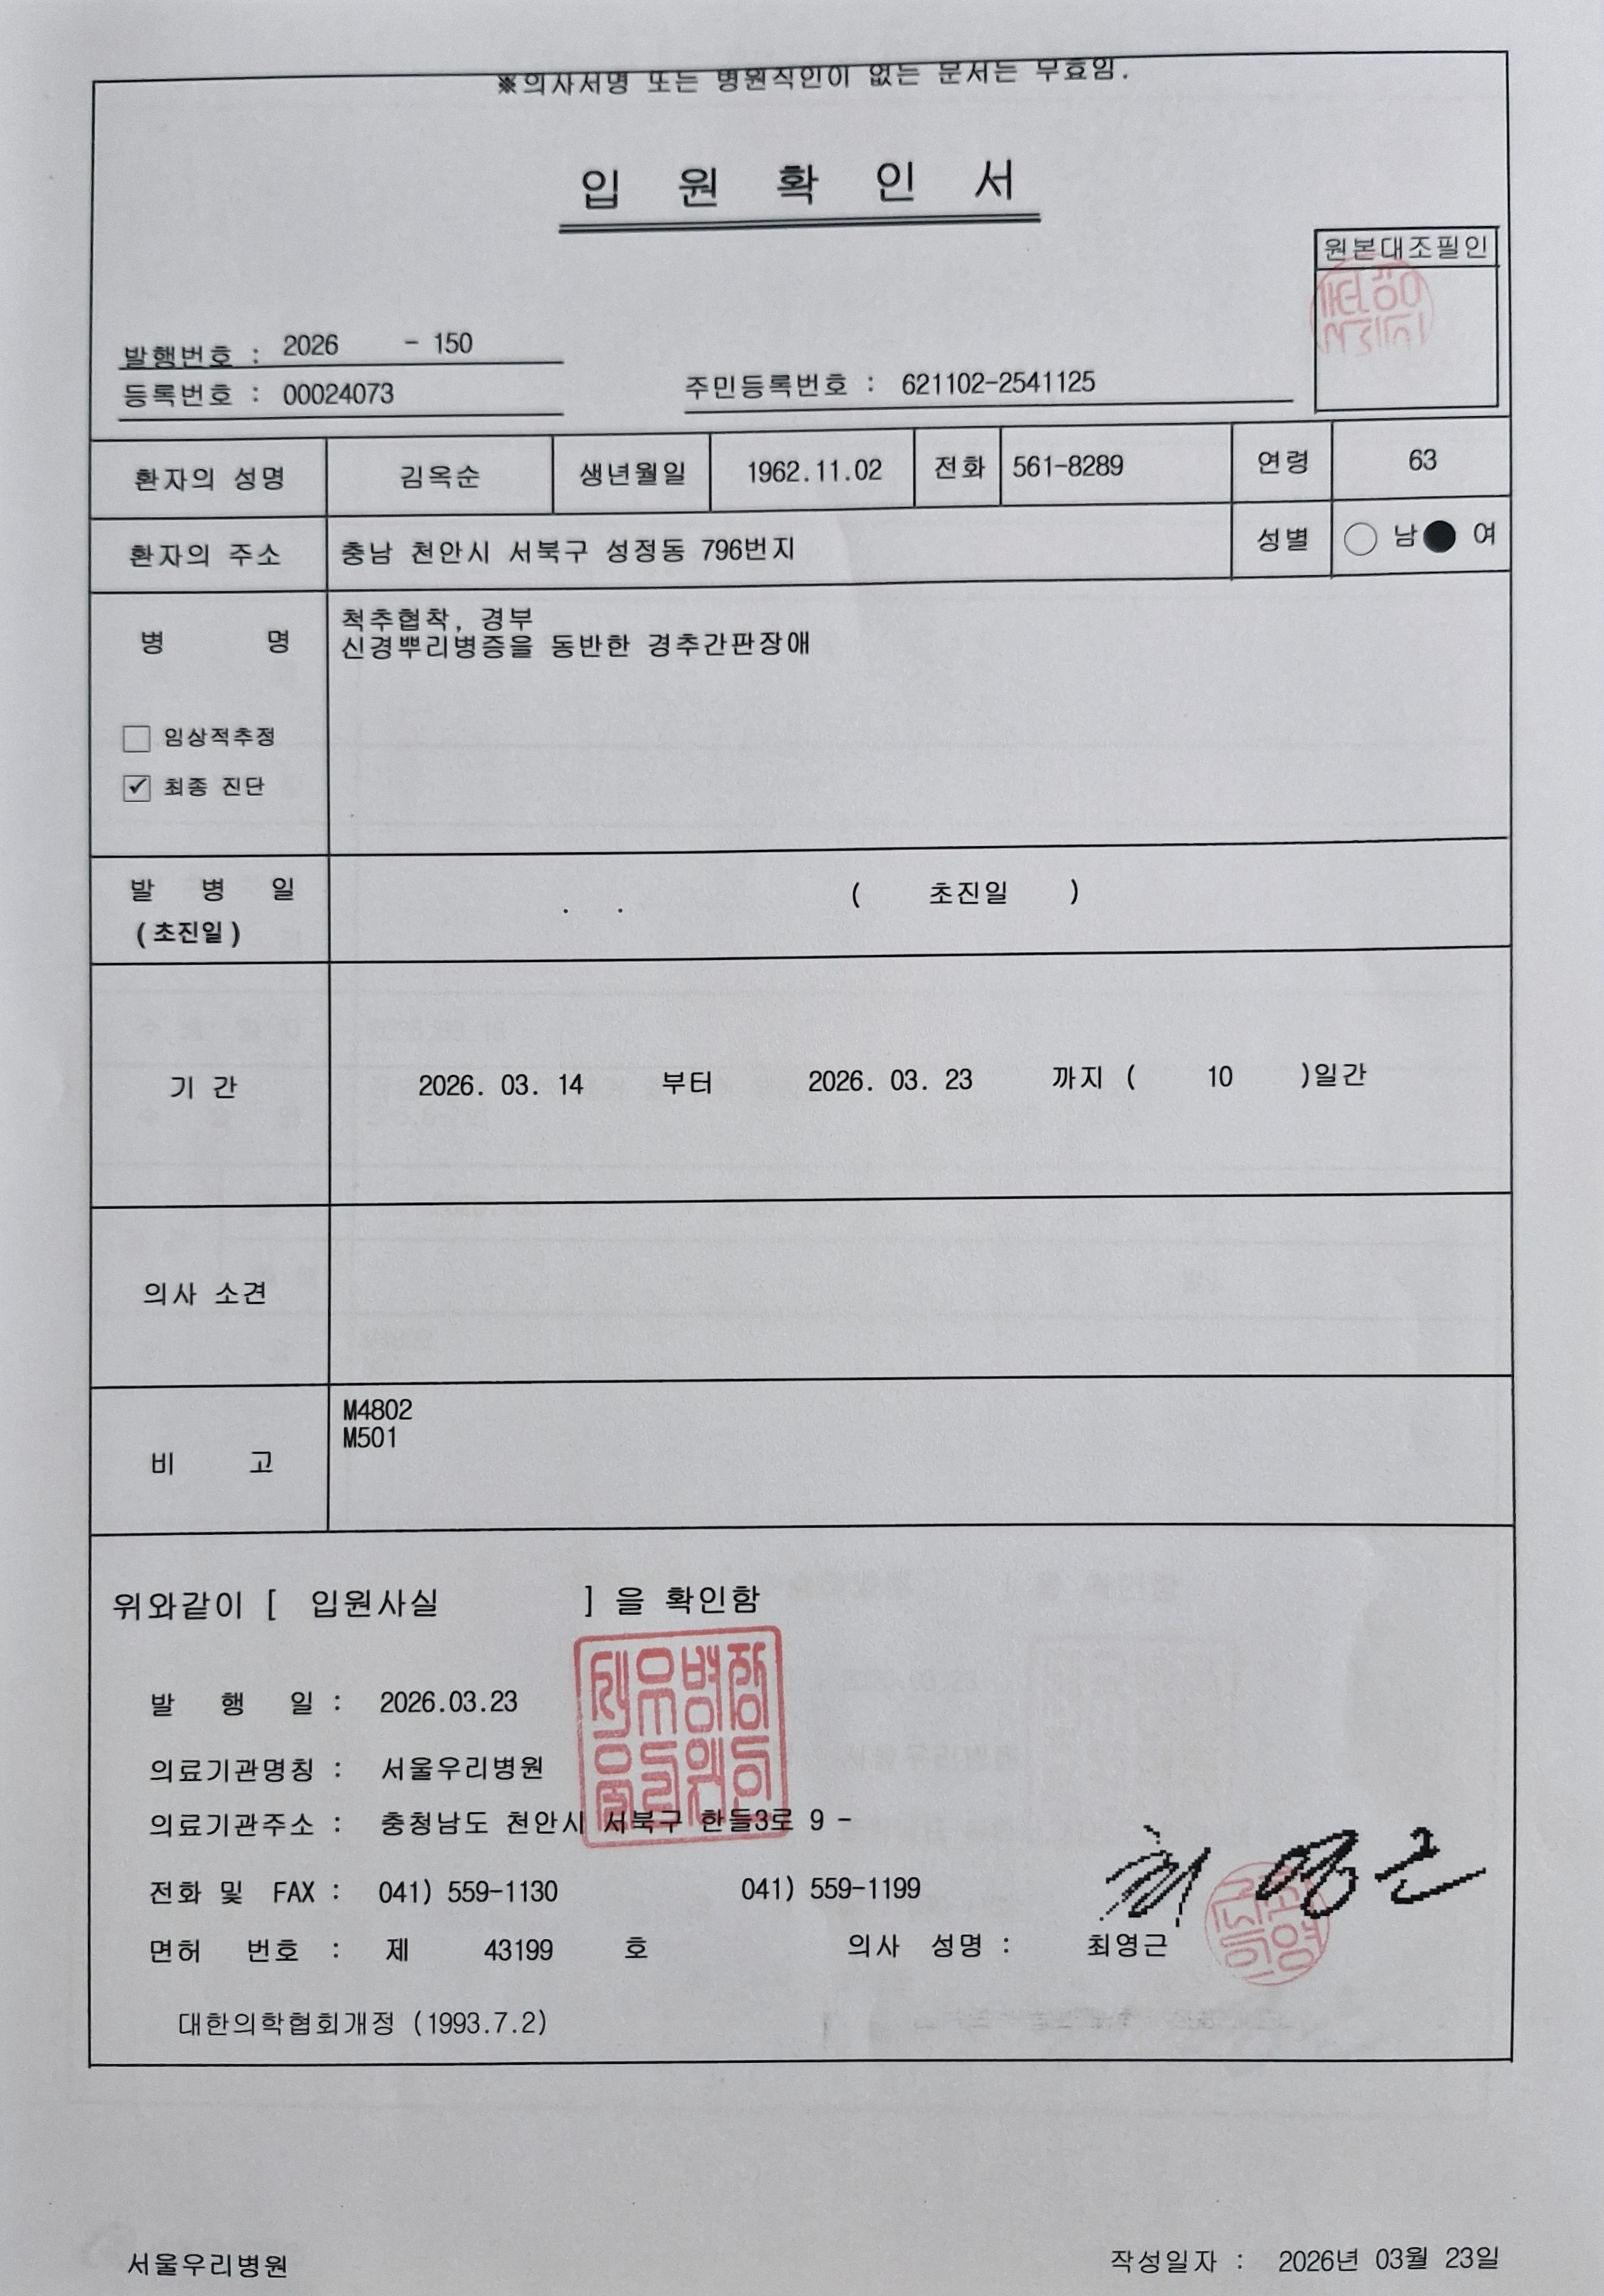 ※의사서명 또는 병원직인이 없는 문서는 무효임.
입 원 확 인 서
원본대조필인
발행번호 : 2026 - 150
등록번호 : 00024073 주민등록번호 : 621102-2541125
환자의 성명 김옥순 생년월일 1962.11.02 전화 561-8289 연령 63
환자의 주소 충남 천안시 서북구 성정동 796번지 성별 ○ 남 ● 여
병 명 척추협착, 경부
신경뿌리병증을 동반한 경추간판장애
☐ 임상적추정
☑ 최종 진단
발 병 일 . . ( 초진일 )
(초진일)
기 간 2026. 03. 14 부터 2026. 03. 23 까지 ( 10 )일간
의사 소견
비 고 M4802
M501
위와같이 [ 입원사실 ] 을 확인함
발 행 일 : 2026.03.23
의료기관명칭 : 서울우리병원
의료기관주소 : 충청남도 천안시 서북구 한들3로 9 -
전화 및 FAX : 041) 559-1130 041) 559-1199
최영근
면허 번호 : 제 43199 호 의사 성명 : 최영근
대한의학협회개정 (1993.7.2)
서울우리병원 작성일자 : 2026년 03월 23일